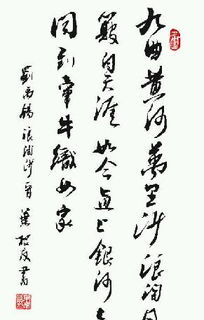 九曲黄河萬里沙浪淘風
簸自天涯如今直上銀河去
同到牽牛織女家
劉禹錫浪淘沙一首